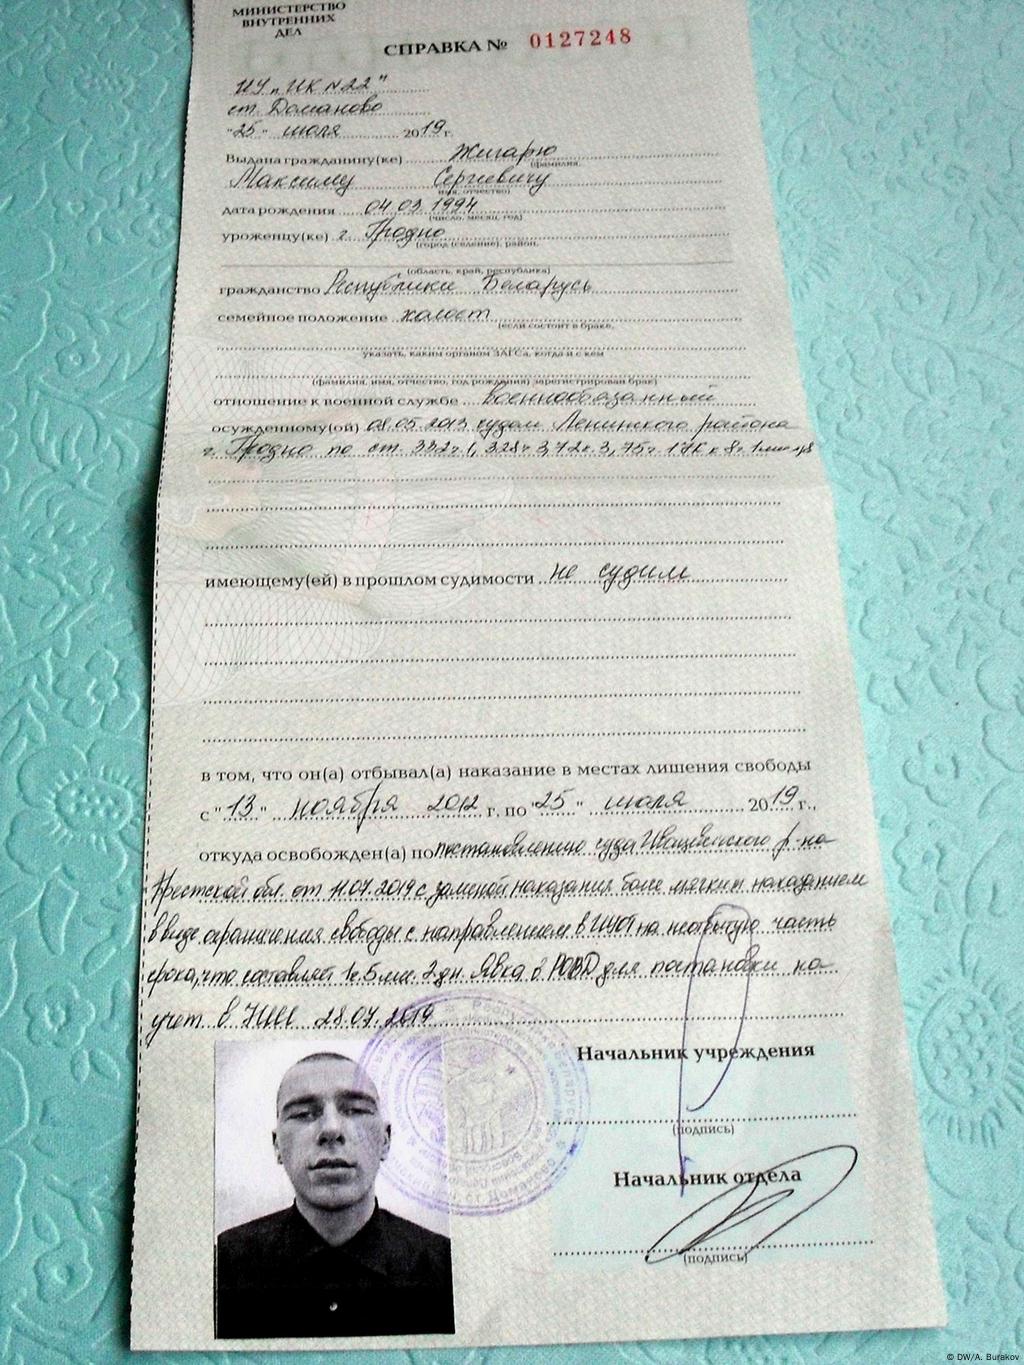 МИНИСТЕРСТВО
ВНУТРЕННИХ
ДЕЛ
СПРАВКА № 0127248
ИУ „ИК №22"
ст. Доманово
"25" июля 2019 г.
Выдана гражданину(ке) Жигарю
(фамилия,
Максиму Сергиевичу
имя, отчество)
дата рождения 04 03 1994
(число, месяц, год)
уроженцу(ке) г. Гродно
(город (селение), район,
(область, край, республика)
гражданство Республики Беларусь
семейное положение холост
(если состоит в браке,
указать, каким органом ЗАГСа, когда и с кем
(фамилия, имя, отчество, год рождения) зарегистрирован брак)
отношение к военной службе военнообязанный
осужденному(ой) 08.05 2013 судом Ленинского района
г. Гродно по ст. 332 ч 1, 328 ч 3, 72 ч. 3, 75 ч 1 УК к 8 г 1
имеющему(ей) в прошлом судимости не судим
в том, что он(а) отбывал(а) наказание в местах лишения свободы
с "13" ноября 2012 г. по "25" июля 2019 г.,
откуда освобожден(а) по постановлению суда Ивацевичского р-на
Брестской обл. от 11.07.2019 с заменой наказания более мягким наказанием
в виде ограничения свободы с направлением в ИУОТ на неотбытую часть
срока, что составляет 1г. 5 м. дн. Явка в РОВД для постановки на
учет в УИИ 28.07.2019
Начальник учреждения
(подпись)
Начальник отдела
(подпись)
© DW/A. Burakov